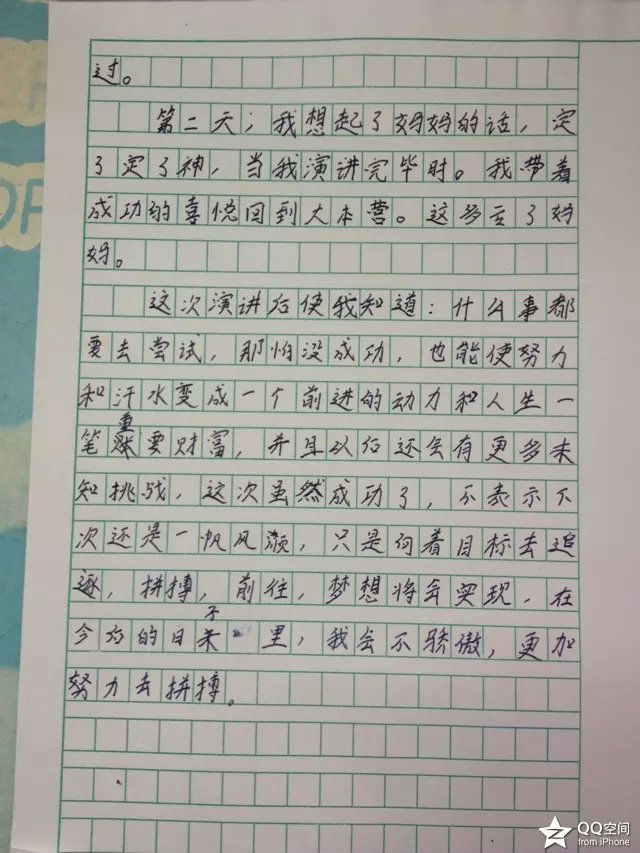 过。
第二天，我想起了妈妈的话，定
了定了神，当我演讲完毕时。我带着
成功的喜悦回到大本营。这多亏了妈
妈。
这次演讲后使我知道：什么事都
要去尝试，那怕没成功，也能使努力
和汗水变成一个前进的动力和人生一
笔重要财富，并且以后还会有更多未
知挑战，这次虽然成功了，不表示下
次还是一帆风顺，只是向着目标去追
逐，拼搏，前往，梦想将会实现，在
今后的日子里，我会不骄傲，更加
努力去拼搏。
QQ空间
from iPhone